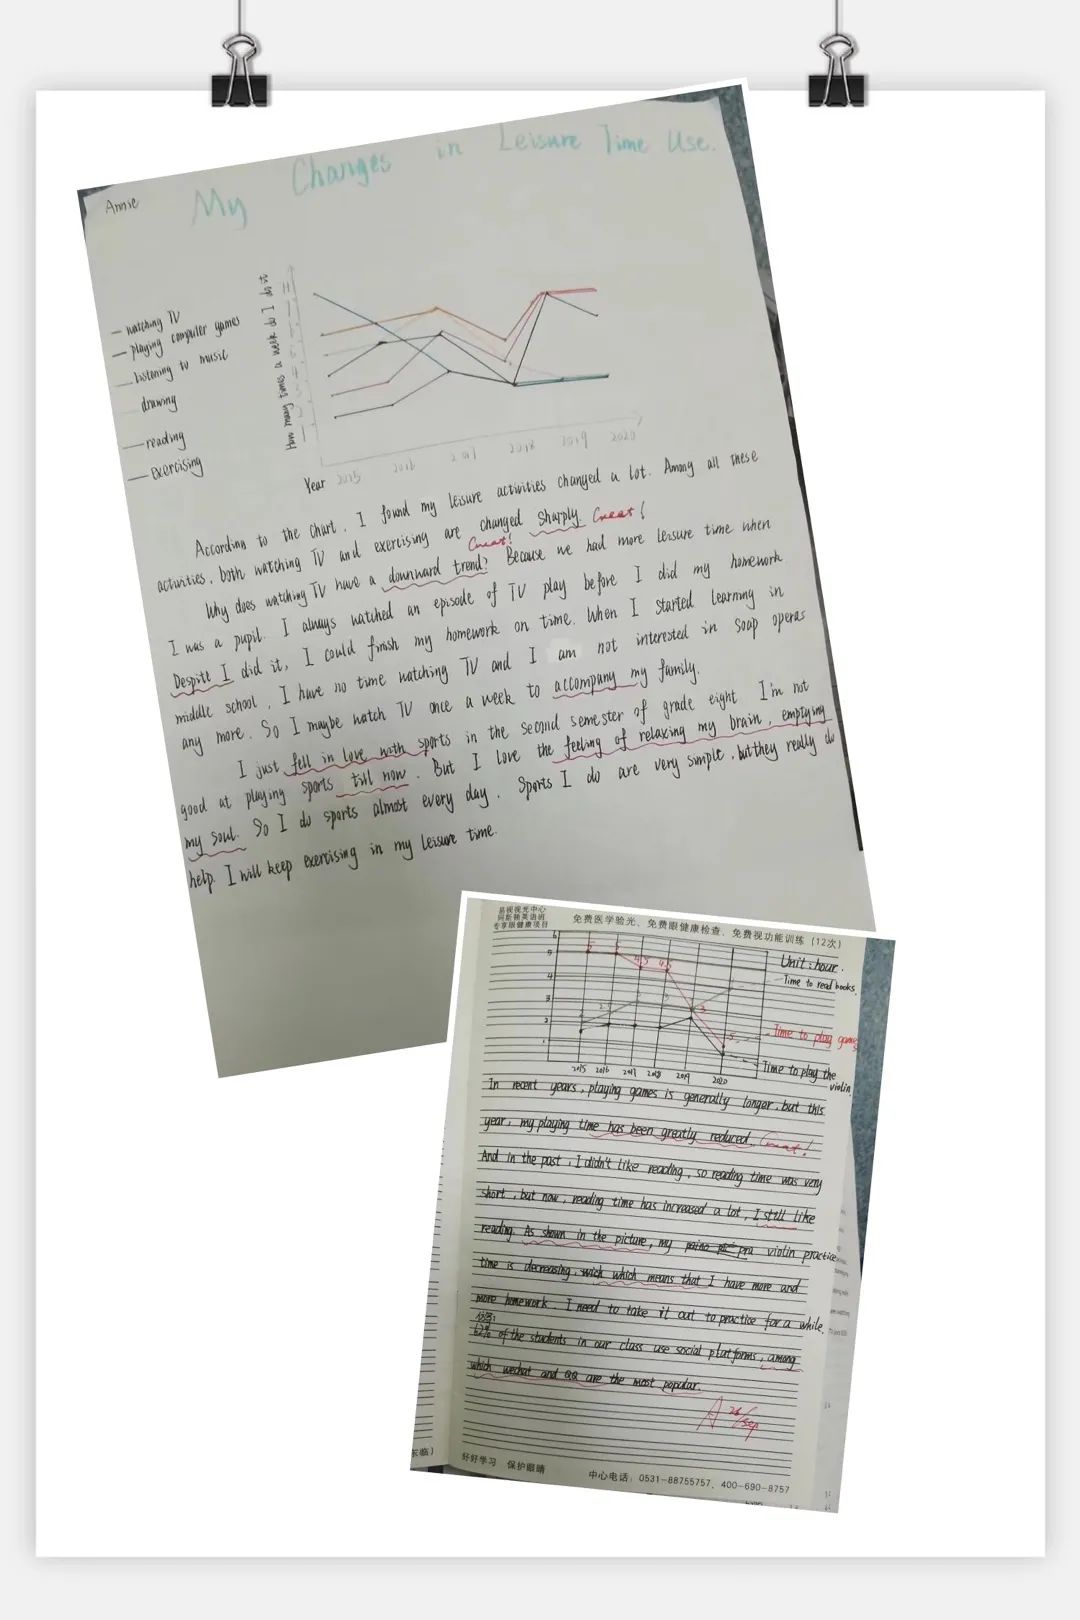 Annie
My Changes in Leisure Time Use.
watching TV
playing computer games
listening to music
drawing
reading
exercising
How many times a week do I do it
Year 2015 2016 2017 2018 2019 2020
According to the chart, I found my leisure activities changed a lot. Among all these
activities, both watching TV and exercising are changed sharply Great!
Great!
Why does watching TV have a downward trend? Because we had more leisure time when
I was a pupil. I always watched an episode of TV play before I did my homework
Despite I did it, I could finish my homework on time. When I started learning in
middle school, I have no time watching TV and I am not interested in soap operas
any more. So I maybe watch TV once a week to accompany my family.
I just fell in love with sports in the second semester of grade eight. I'm not
good at playing sports till now. But I love the feeling of relaxing my brain, emptying
my soul. So I do sports almost every day. Sports I do are very simple, but they really do
help. I will keep exercising in my leisure time.
易视视光中心
阿斯顿英语班
专享眼健康项目
免费医学验光、免费眼健康检查、免费视功能训练(12次)
Unit: hour.
Time to read books.
Time to play games
Time to play the
violin.
6
5
4
3
2
1
5 5 4.5 4.5 3 .5
2015 2016 2017 2018 2019 2020
In recent years, playing games is generally longer, but this
year, my playing time has been greatly reduced. Great!
And in the past, I didn't like reading, so reading time was very
short, but now, reading time has increased a lot, I still like
reading. As shown in the picture, my violin practice
time is decreasing, which means that I have more and
more homework. I need to take it out to practice for a while.
62% of the students in our class use social platforms, among
which wechat and QQ are the most popular.
A 26/Sep
好好学习 保护眼睛
中心电话：0531-88755757、400-690-8757
东临)